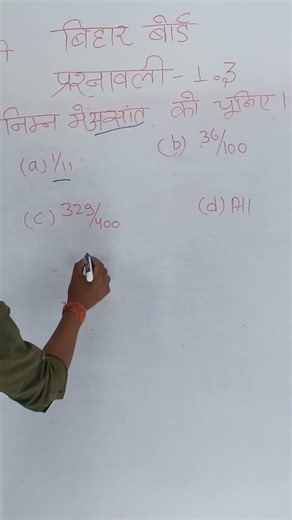 बिहार बोर्ड
प्रश्नावली - 1.3
निम्न में असांत को चूनिए।
(a) 1/11
(b) 36/100
(c) 329/400
(d) All